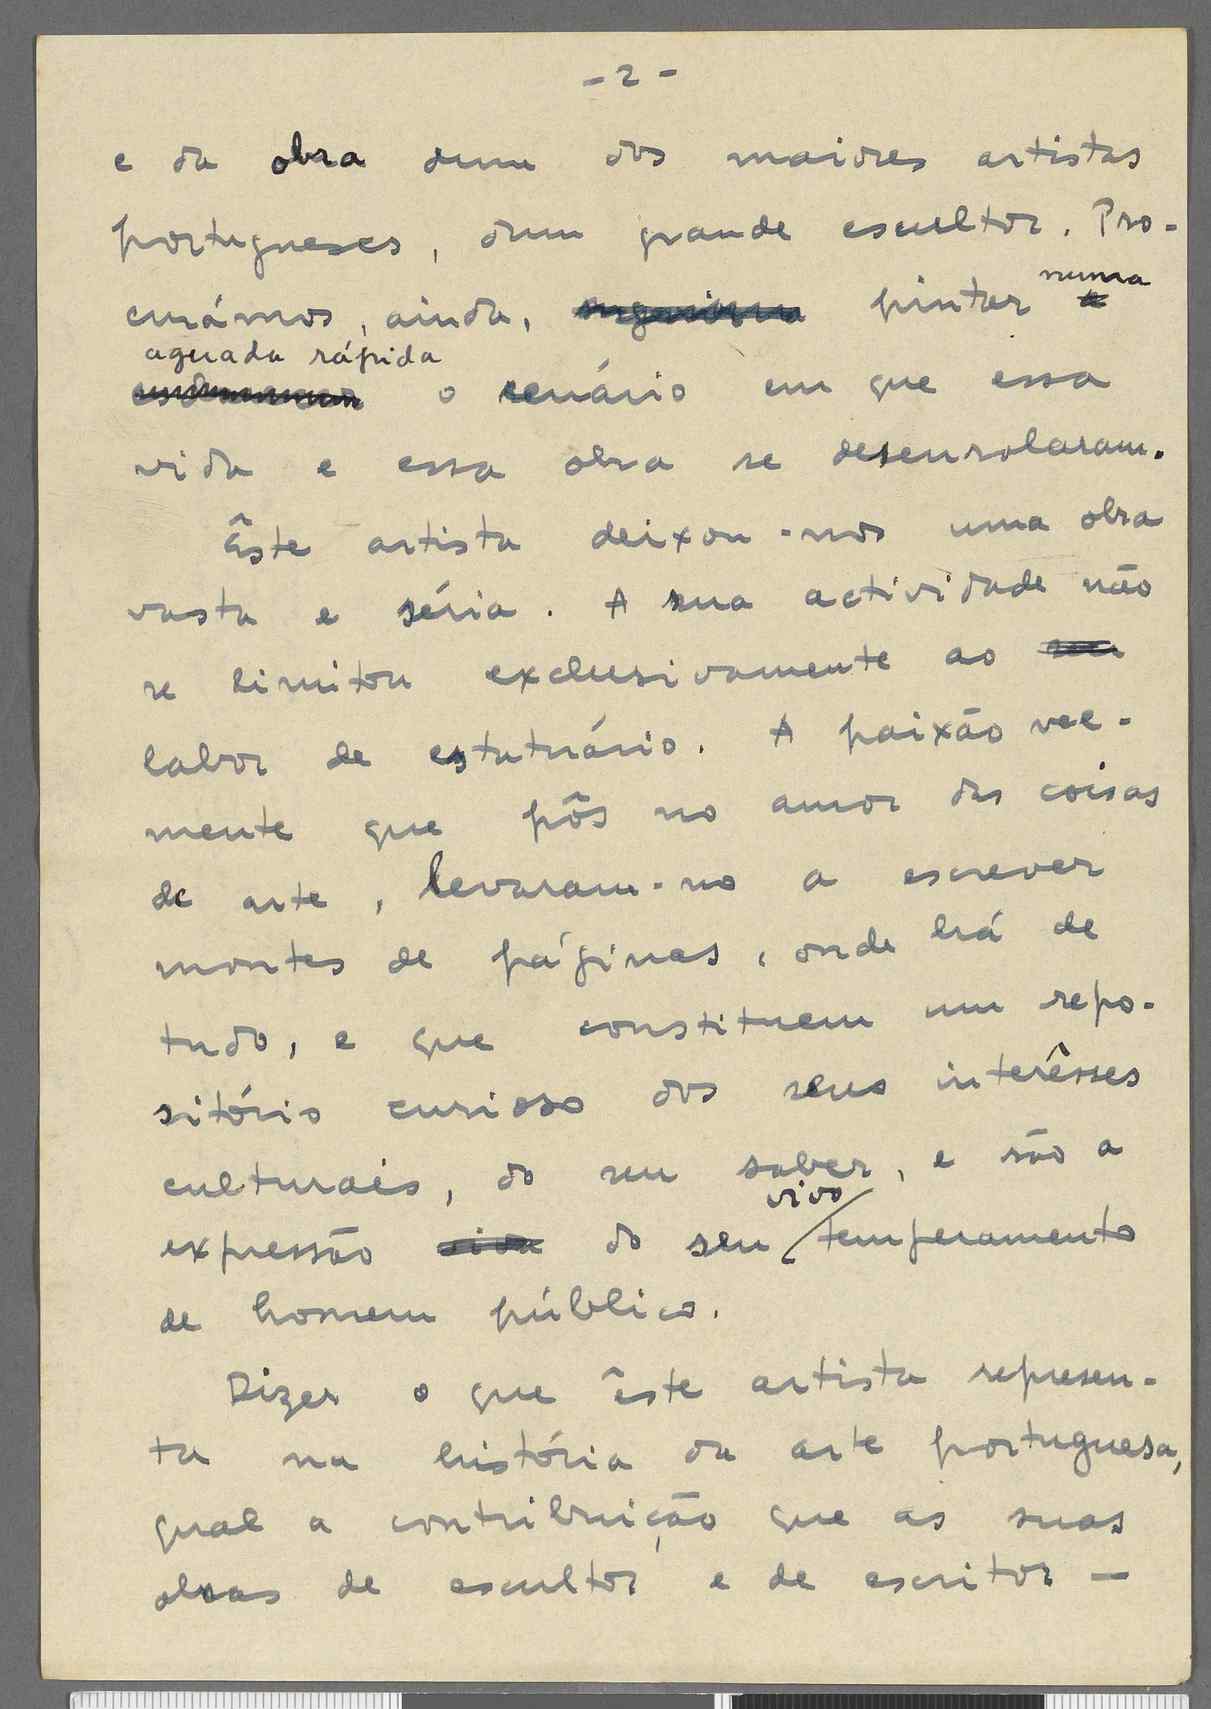 - 2 -
e da obra dum dos maiores artistas
portugueses, dum grande escultor. Pro-
curámos, ainda, pintar numa
aguada rápida
o cenário em que essa
vida e essa obra se desenrolaram.
Êste artista deixou-nos uma obra
vasta e séria. A sua actividade não
se limitou exclusivamente ao seu
labor de estatuário. A paixão vee-
mente que pôs no amor das coisas
de arte, levaram-no a escrever
montes de páginas, onde há de
tudo, e que constituem um repo-
sitório curioso dos seus interêsses
culturais, do seu saber, e são a
vivo
expressão viva do seu temperamento
de homem público.
Dizer o que êste artista represen-
ta na história da arte portuguesa,
qual a contribuição que as suas
obras de escultor e de escritor —